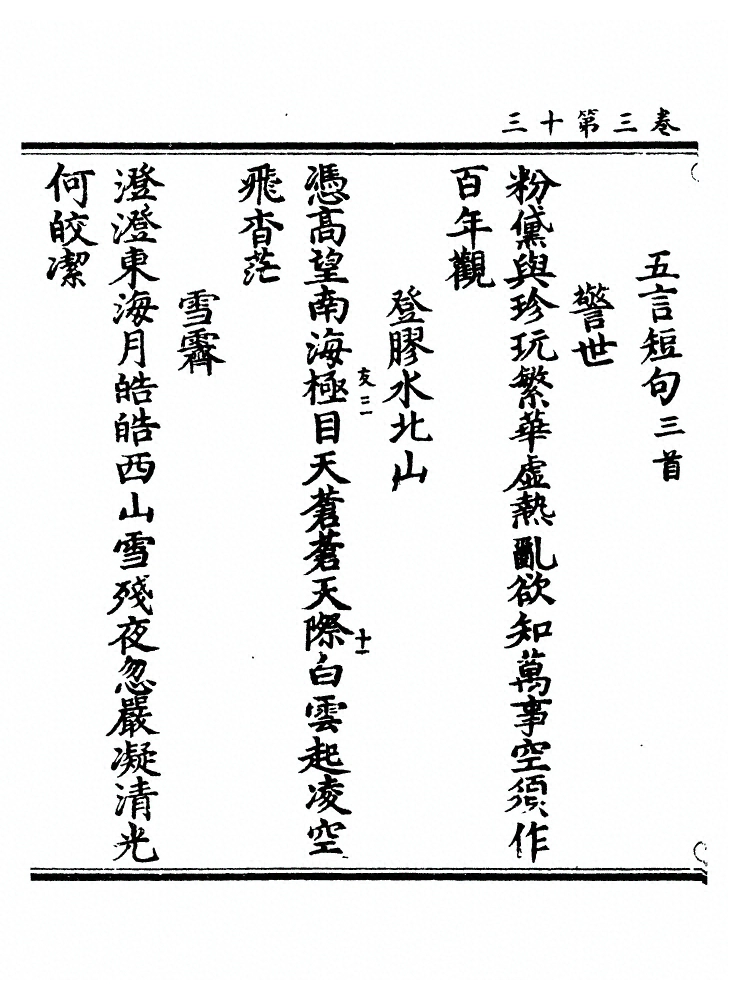 卷三第十三
五言短句三首
警世
粉黛與珍玩繁華虛熱亂欲知萬事空須作
百年觀
登膠水北山
憑高望南海極目天蒼蒼天際白雲起凌空
飛杳茫
友三一
十一
雪霽
澄澄東海月皓皓西山雪殘夜忽嚴凝清光
何皎潔